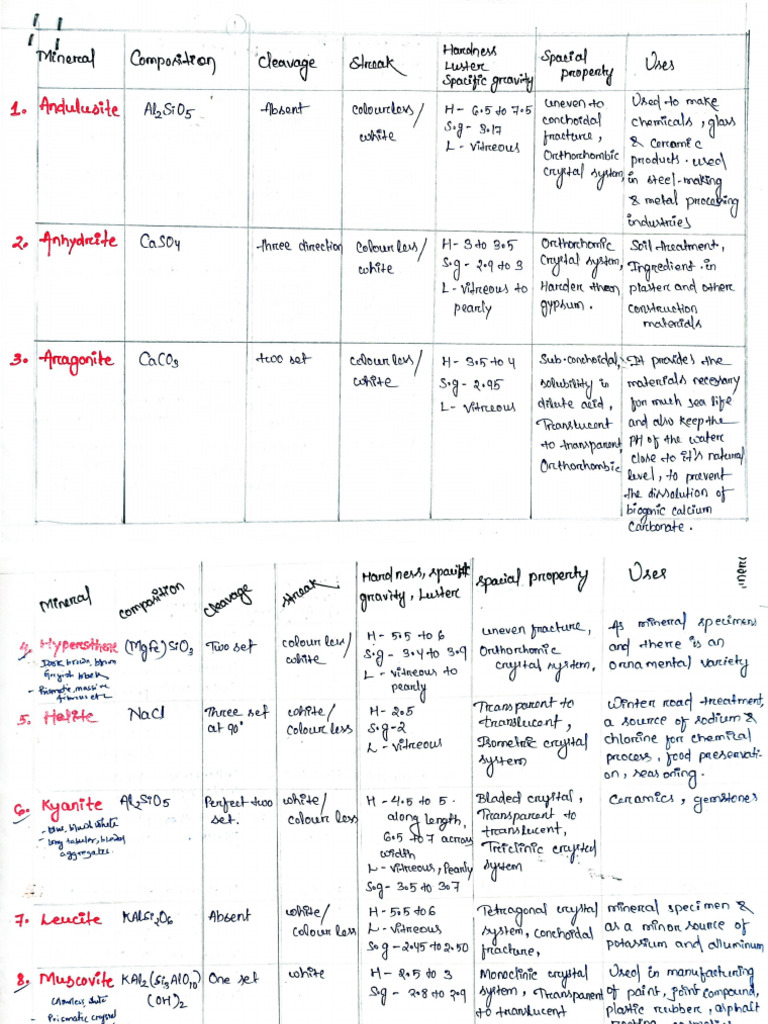 Mineral Composition Cleavage Streak Hardness Luster Spacific gravity Spacial property Uses
1. Andulusite Al2SiO5 Absent colourless/ white H- 6.5 to 7.5
S.g - 3.17
L - Vitreous
uneven to
conchoidal
fracture,
Orthorchombic
crystal system,
Used to make
chemicals, glass
& ceramic
products. used
in steel-making
& metal processing
industries
2. Anhydrite CaSO4 three direction colourless/ white H- 3 to 3.5
S.g - 2.9 to 3
L - Vitreous to
pearly
Orthorchomic
Crystal system,
Harder then
gypsum.
Soil treatment,
Ingredient in
plaster and other
construction
materials
3. Aragonite CaCO3 two set colourless/ white H- 3.5 to 4
S.g - 2.95
L- Vitreous
Sub-conchoidal,
solubility in
dilute acid,
Translucent
to transparent,
Orthorchombic
It provides the
materials necessary
for much sea life
and also keep the
PH of the water
close to it's natural
level, to prevent
the dissolution of
biogenic calcium
Carbonate.
Mineral composition cleavage streak Hardness, spacific
gravity, Luster
spacial property Uses
4. Hypersthene (MgFe)SiO3 Two set colourless/ white H - 5.5 to 6
S.g - 3.4 to 3.9
L - vitreous to
pearly
uneven fracture,
Orthorchomic
crystal system,
As mineral specimens
and there is an
ornamental variety
5. Halite NaCl Three set
at 90°
white/
colourless
H - 2.5
S.g-2
L - Vitreous
Transparent to
translucent,
Isometric crystal
system
Winter road treatment,
a source of sodium &
chlorine for chemical
process, food preservati-
on, seasoning.
6. Kyanite Al2SiO5 Perfect two
set.
white/
colourless
- long tabular, bladed
aggregates.
H - 4.5 to 5.
along length,
6.5 to 7 across
width
L - Vitreous, Pearly
S.g - 3.5 to 3.7
Bladed crystal,
Transparent to
translucent,
Triclinic crystal
system
Ceramics, gemstones
7. Leucite KAlSi2O6 Absent white/
colourless
H - 5.5 to 6
L - Vitreous
S.g - 2.45 to 2.50
Tetragonal crystal
system, conchoidal
fracture,
mineral specimen &
as a minor source of
potassium and alluminum
8. Muscovite KAl2(Si3AlO10)
(OH)2
One set white
- Prismatic crystal
H - 2.5 to 3
S.g - 2.8 to 2.9
Monoclinic crystal
system, Transparent
to translucent
Used in manufacturing
of paint, joint compound,
plastic rubber, asphalt